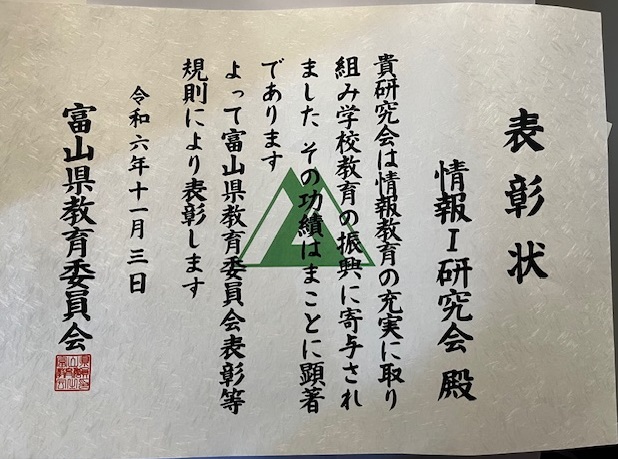 表彰状
情報Ⅰ研究会 殿
貴研究会は情報教育の充実に取り
組み学校教育の振興に寄与され
ました その功績はまことに顕著
であります
よって富山県教育委員会表彰等
規則により表彰します
令和六年十一月三日
富山県教育委員会